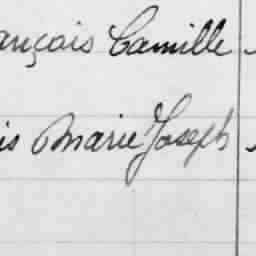 ançois Camille
is Marie Joseph